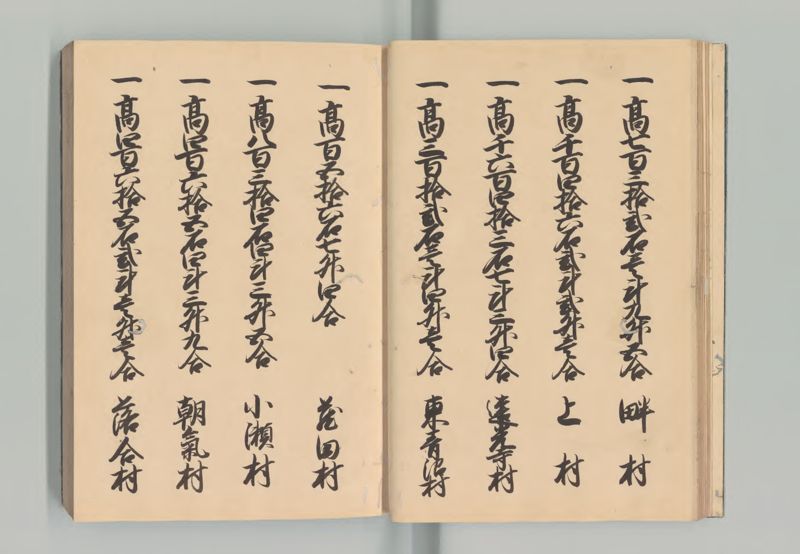 一高七百三拾弐石壱斗九升五合 畔村
一高千百四拾六石弐斗弐升壱合 上村
一高千六百四拾三石七斗三升四合 遠光寺村
一高三百拾弐石壱斗四升壱合 東青沼村
一高百五拾六石七升四合 蓬田村
一高八百三拾四石四斗三升五合 小瀬村
一高四百六拾五石四斗三升九合 朝氣村
一高四百六拾五石弐斗壱升壱合 落合村